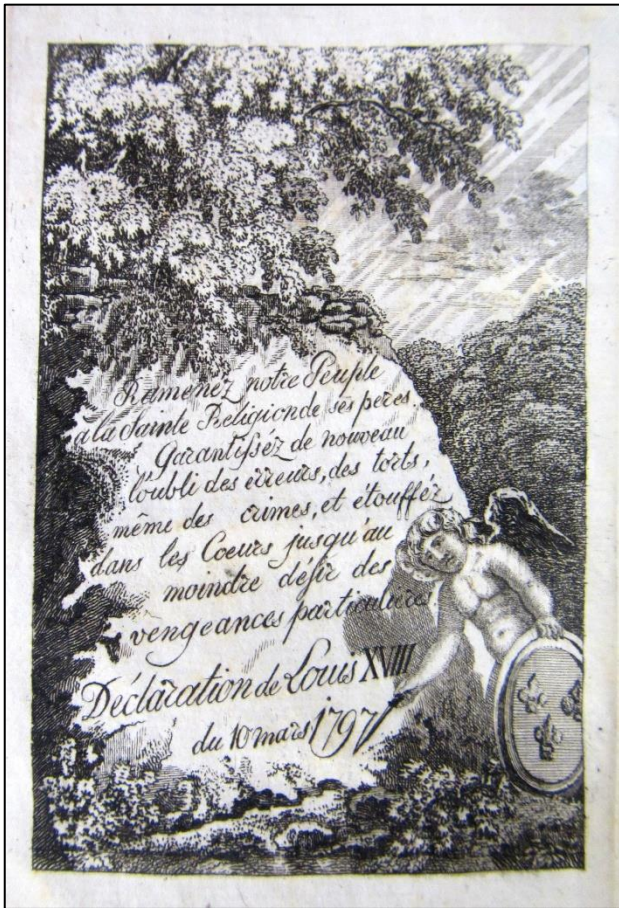 Ramenez notre Peuple
a la Sainte Religion de ses peres.
Garantissez de nouveau
l'oubli des erreurs, des torts,
même des crimes, et étouffez
dans les Coeurs jusqu'au
moindre désir des
vengeances particulieres.
Déclaration de Louis XVIII
du 10 mars 1797